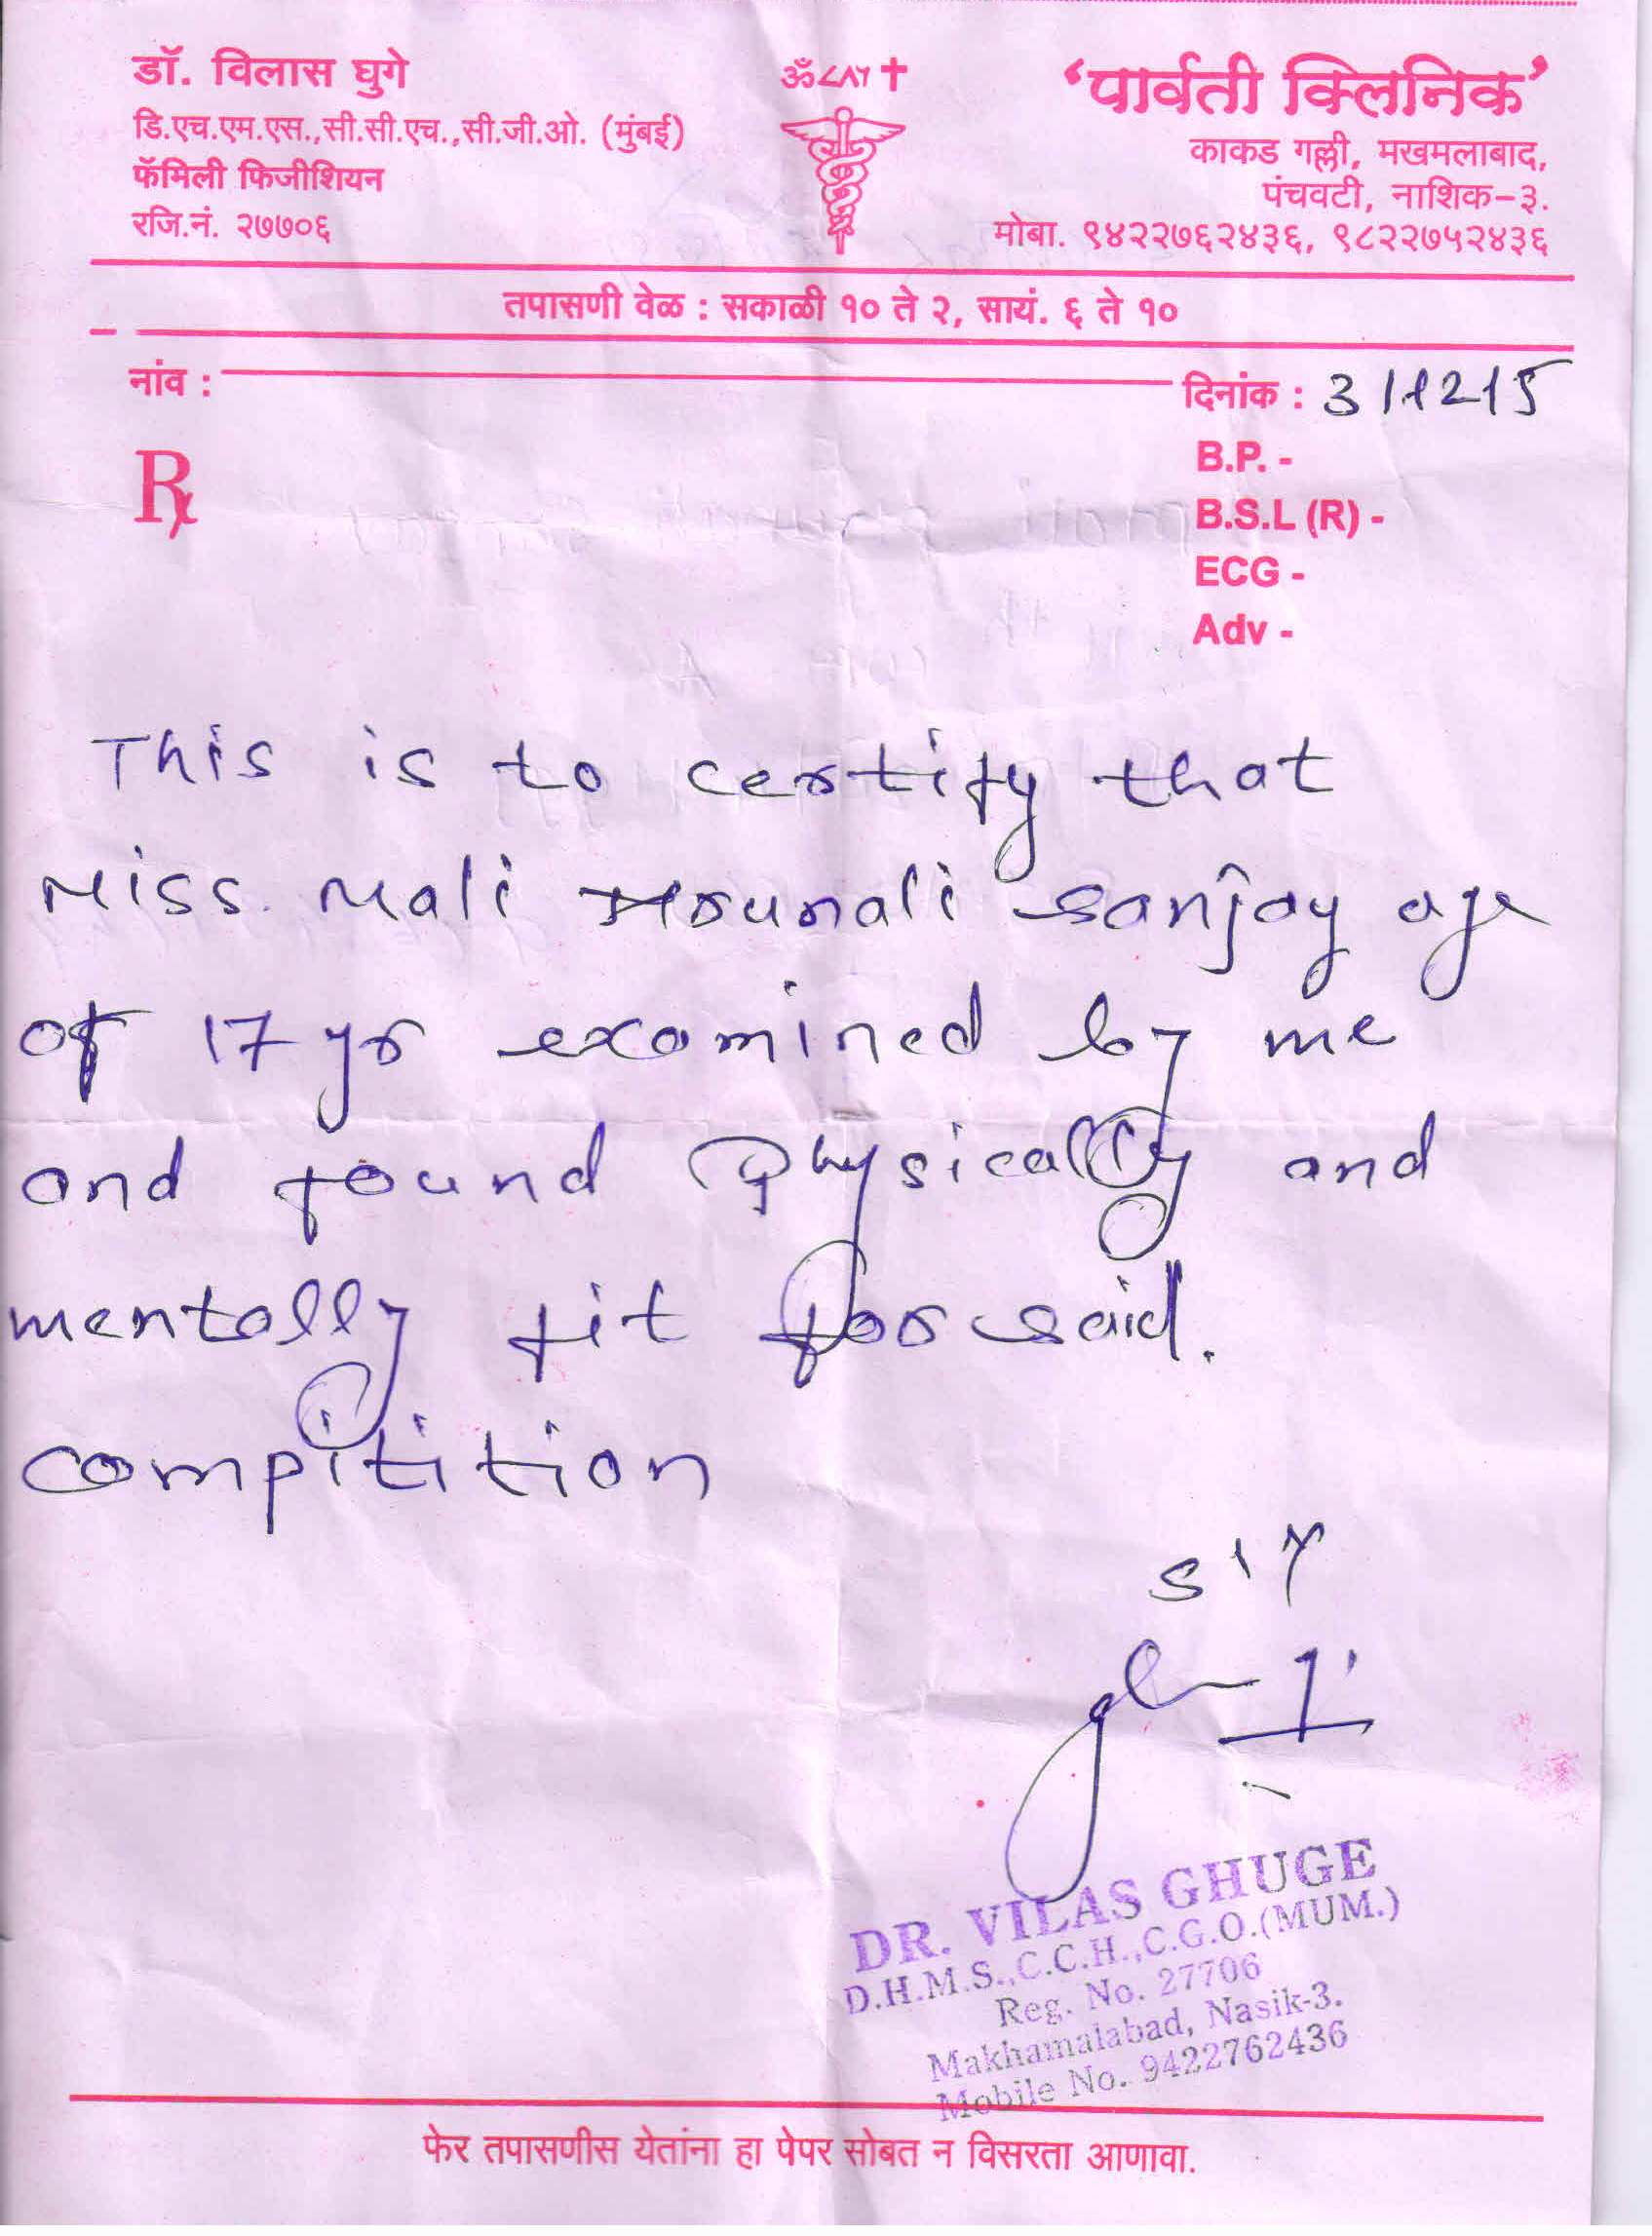 डॉ. विलास घुगे
डि.एच.एम.एस.,सी.सी.एच.,सी.जी.ओ. (मुंबई)
फॅमिली फिजीशियन
रजि.नं. २७७०६
ॐ
'पार्वती क्लिनिक'
काकड गल्ली, मखमलाबाद,
पंचवटी, नाशिक-३.
मोबा. ९४२२७६२४३६, ९८२२७५२४३६
तपासणी वेळ : सकाळी १० ते २, सायं. ६ ते १०
नांव :
दिनांक : 3/12/15
Rx
B.P. -
B.S.L (R) -
ECG -
Adv -
This is to certify that
Miss. Mali Mrunali Sanjay age
of 17 yr examined by me
and found physically and
mentally fit for said.
compitition
DR. VILAS GHUGE
D.H.M.S.,C.C.H.,C.G.O.(MUM.)
Reg. No. 27706
Makhamalabad, Nasik-3.
Mobile No. 9422762436
फेर तपासणीस येतांना हा पेपर सोबत न विसरता आणावा.